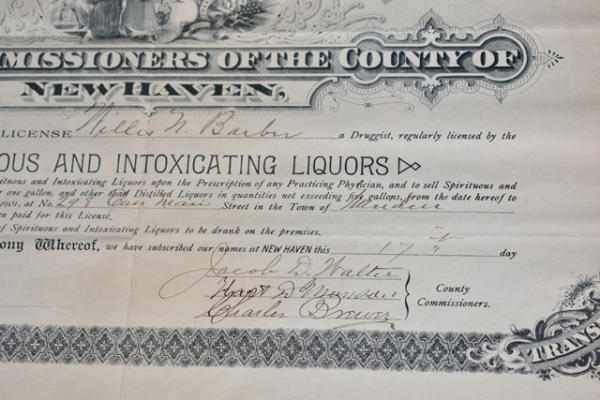 MMISSIONERS OF THE COUNTY OF
NEW HAVEN,
LICENSE Willis N. Barber a Druggist, regularly licensed by the
OUS AND INTOXICATING LIQUORS
rituous and Intoxicating Liquors upon the Prescription of any Practicing Physician, and to sell Spirituous and
r one gallon, and other than Distilled Liquors in quantities not exceeding five gallons, from the date hereof to
1901, at No. 298 East Main Street in the Town of Meriden
en paid for this License.
of Spirituous and Intoxicating Liquors to be drank on the premises.
ony Whereof, we have subscribed our names at NEW HAVEN this 17 th day
Jacob D. Walter
D. Munson County
Charles Brewer Commissioners.
TRANS